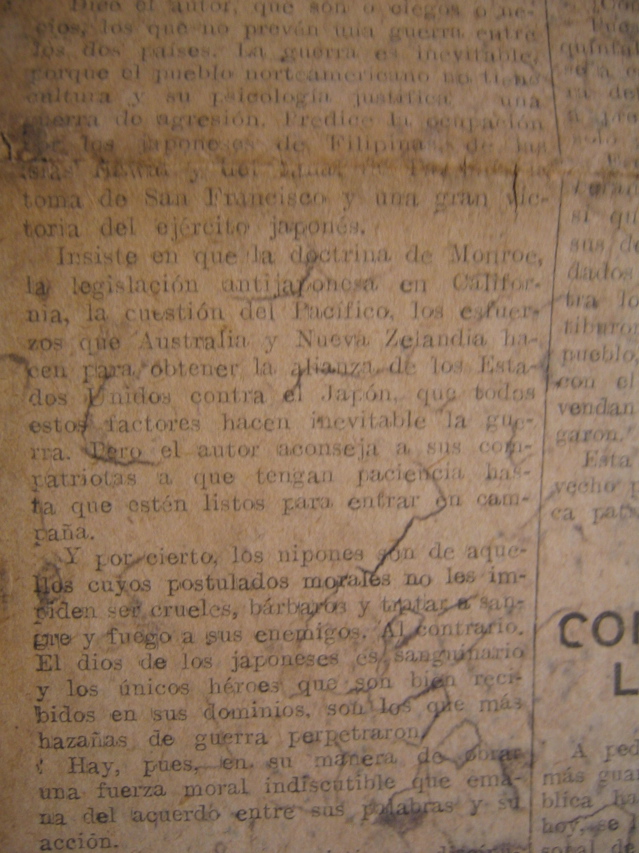 Dice el autor, que son o ciegos o ne-
cios, los que no prevén una guerra entre
los dos países. La guerra es inevitable,
porque el pueblo norteamericano no tiene
cultura y su psicología justifica una
guerra de agresión. Predice la ocupación
por los japoneses de Filipinas de las
islas Hawai y del
toma de San Francisco y una gran vic-
toria del ejército japonés.
Insiste en que la doctrina de Monroe,
la legislación antijaponesa en Califor-
nia, la cuestión del Pacífico, los esfuer-
zos que Australia y Nueva Zelandia ha-
cen para obtener la alianza de los Esta-
dos Unidos contra el Japón, que todos
estos factores hacen inevitable la gue-
rra. Pero el autor aconseja a sus com-
patriotas a que tengan paciencia has-
ta que estén listos para entrar en cam-
paña.
Y por cierto, los nipones son de aque-
llos cuyos postulados morales no les im-
piden ser crueles, bárbaros y tratar a san-
gre y fuego a sus enemigos. Al contrario.
El dios de los japoneses es sanguinario
y los únicos héroes que son bien reci-
bidos en sus dominios, son los que más
hazañas de guerra perpetraron.
Hay, pues, en su manera de obrar,
una fuerza moral indiscutible que ema-
na del acuerdo entre sus palabras y su
acción.
quinta
si qu
sus de
dados
tra lo
tiburon
pueblo,
con el
vendan
garon."
Esta
vecho p
ca patr
CO
L
A ped
más gua
blica ha
hoy, se l
soral de